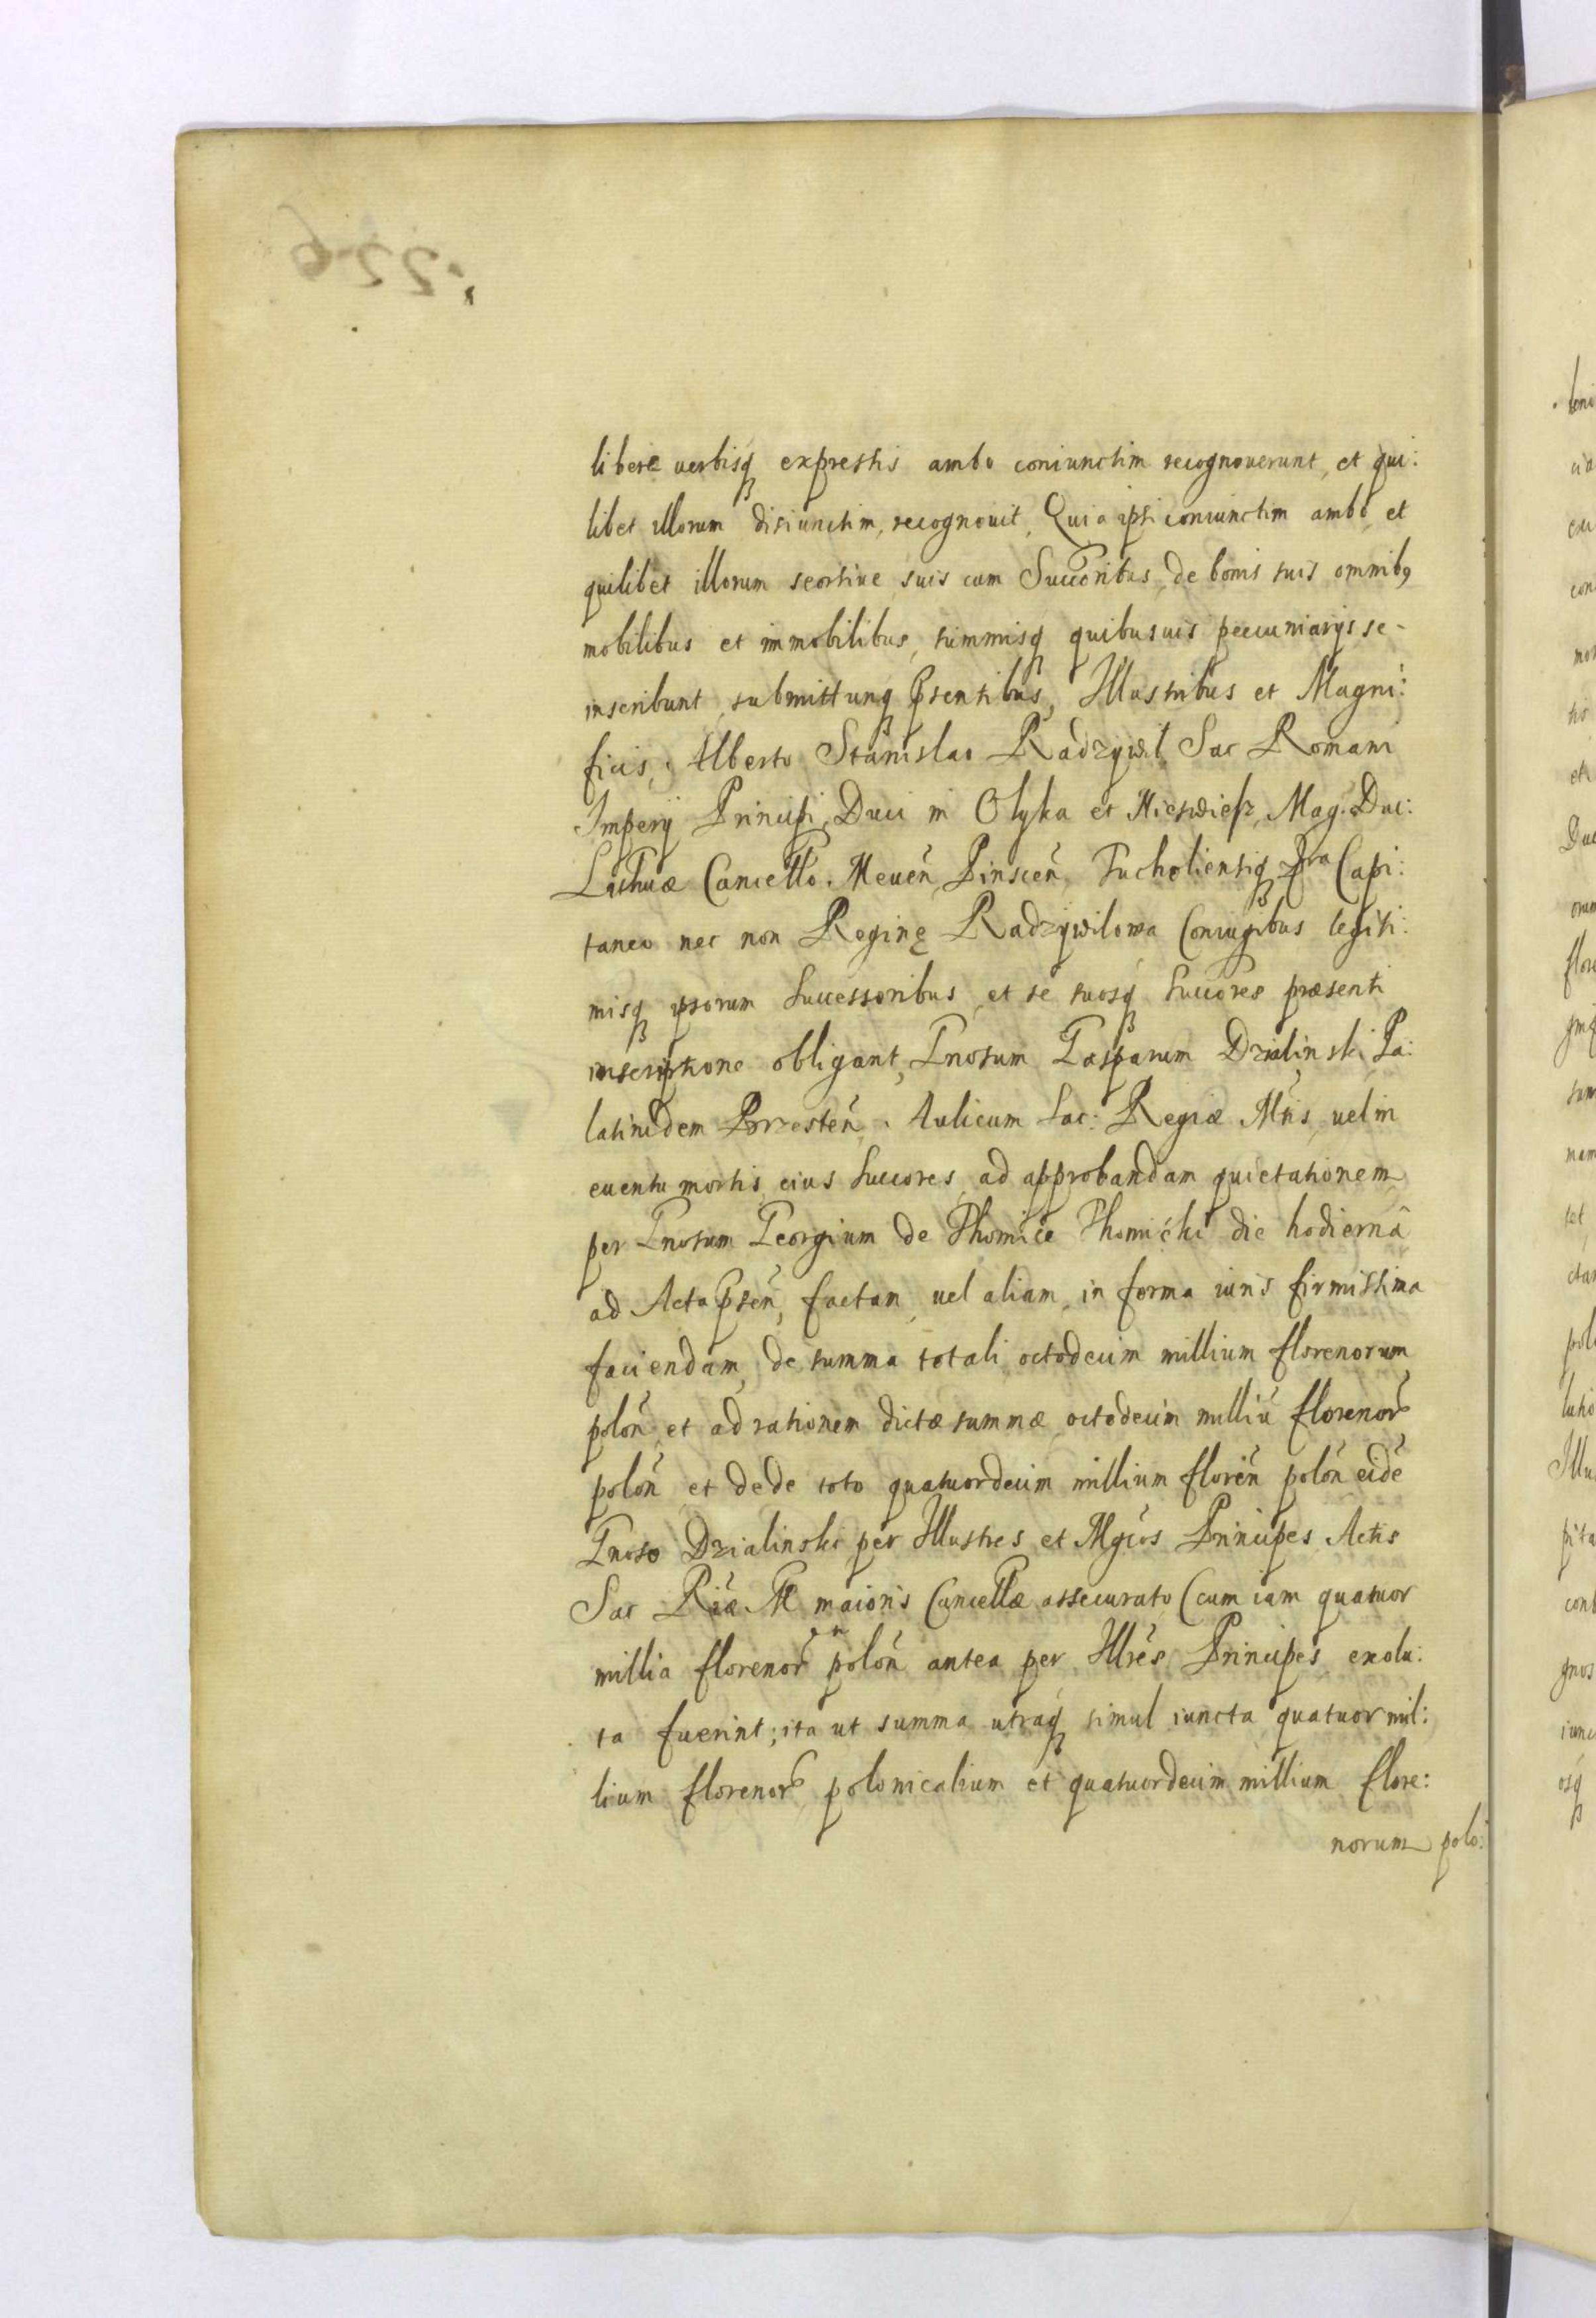 libere verbisq expressis ambo coniunctim recognoverunt, et qui:
libet illorum disiunctim, recognovit, Quia ipsi coniunctim ambo, et
quilibet illorum seorsive suis cum Succoribus, de bonis suis omnibꝰ
mobilibus et immobilibus, summisq quibusvis pecuniarijs se-
inscribunt, submittunq Psentibus, Illustribus et Magni:
ficis, Alberto Stanislao Radzywil, Sac Romani
Imperij Principi, Duci in Olyka et Nieswiesz, Mag. Duc:
Lithuæ Cancello. Meven̄, Pinscen̄, Tucholiensiq Capi:
taneo nec non Reginę Radzywilowa Coniugibus legiti:
misq ipsorum Successoribus, et se suosq Succores præsenti
inscriptione obligant, Gnosum Gasparum Dzialinski Pa:
latinidem Brzesten̄. Aulicum Sac: Regiæ Mtis, vel in
eventu mortis, eius Succores, ad approbandam quietationem
per Gnosum Georgium de Thomice Thomicki die hodiernâ
ad Acta Psen̄, factan, vel aliam, in forma iuris firmissima
faciendam, de summa totali octodecim millium florenorum
polon̄, et ad rationem dictæ summæ octodecim milliū florenor
polon̄ et de de toto quatuordecim millium floren̄ polon̄ eidē
Gnoso Dzialinski per Illustres et Mgcos Principes Actis
Sac Riæ M maioris Cancellæ assecurato (cum iam quatuor
millia florenor polon̄ antea per Illres Principes exolu:
ta fuerint; ita ut summa utraq simul iuncta quatuor mil:
lium florenor polonicalium et quatuordecim millium flore:
norum polo: